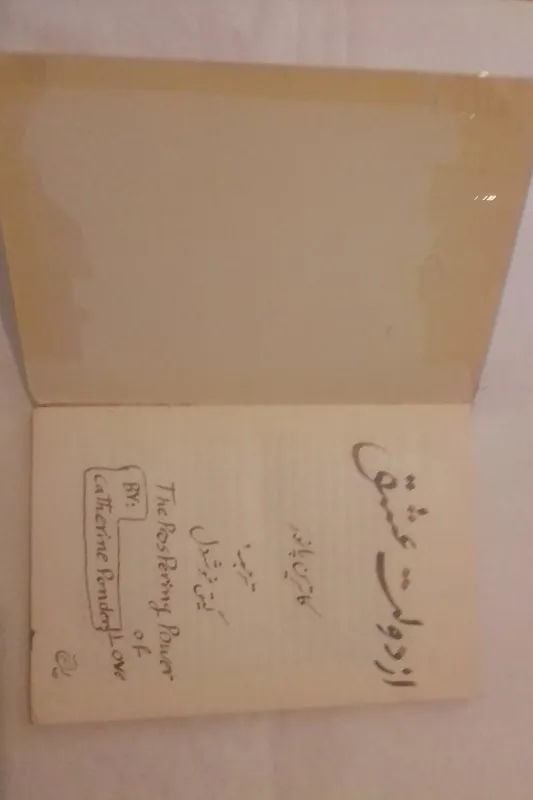 از دولت عشق
کاترین پاندر
ترجمه:
گیتی خوشدل
The Prospering Power
of
Love
BY:
Catherine Ponder